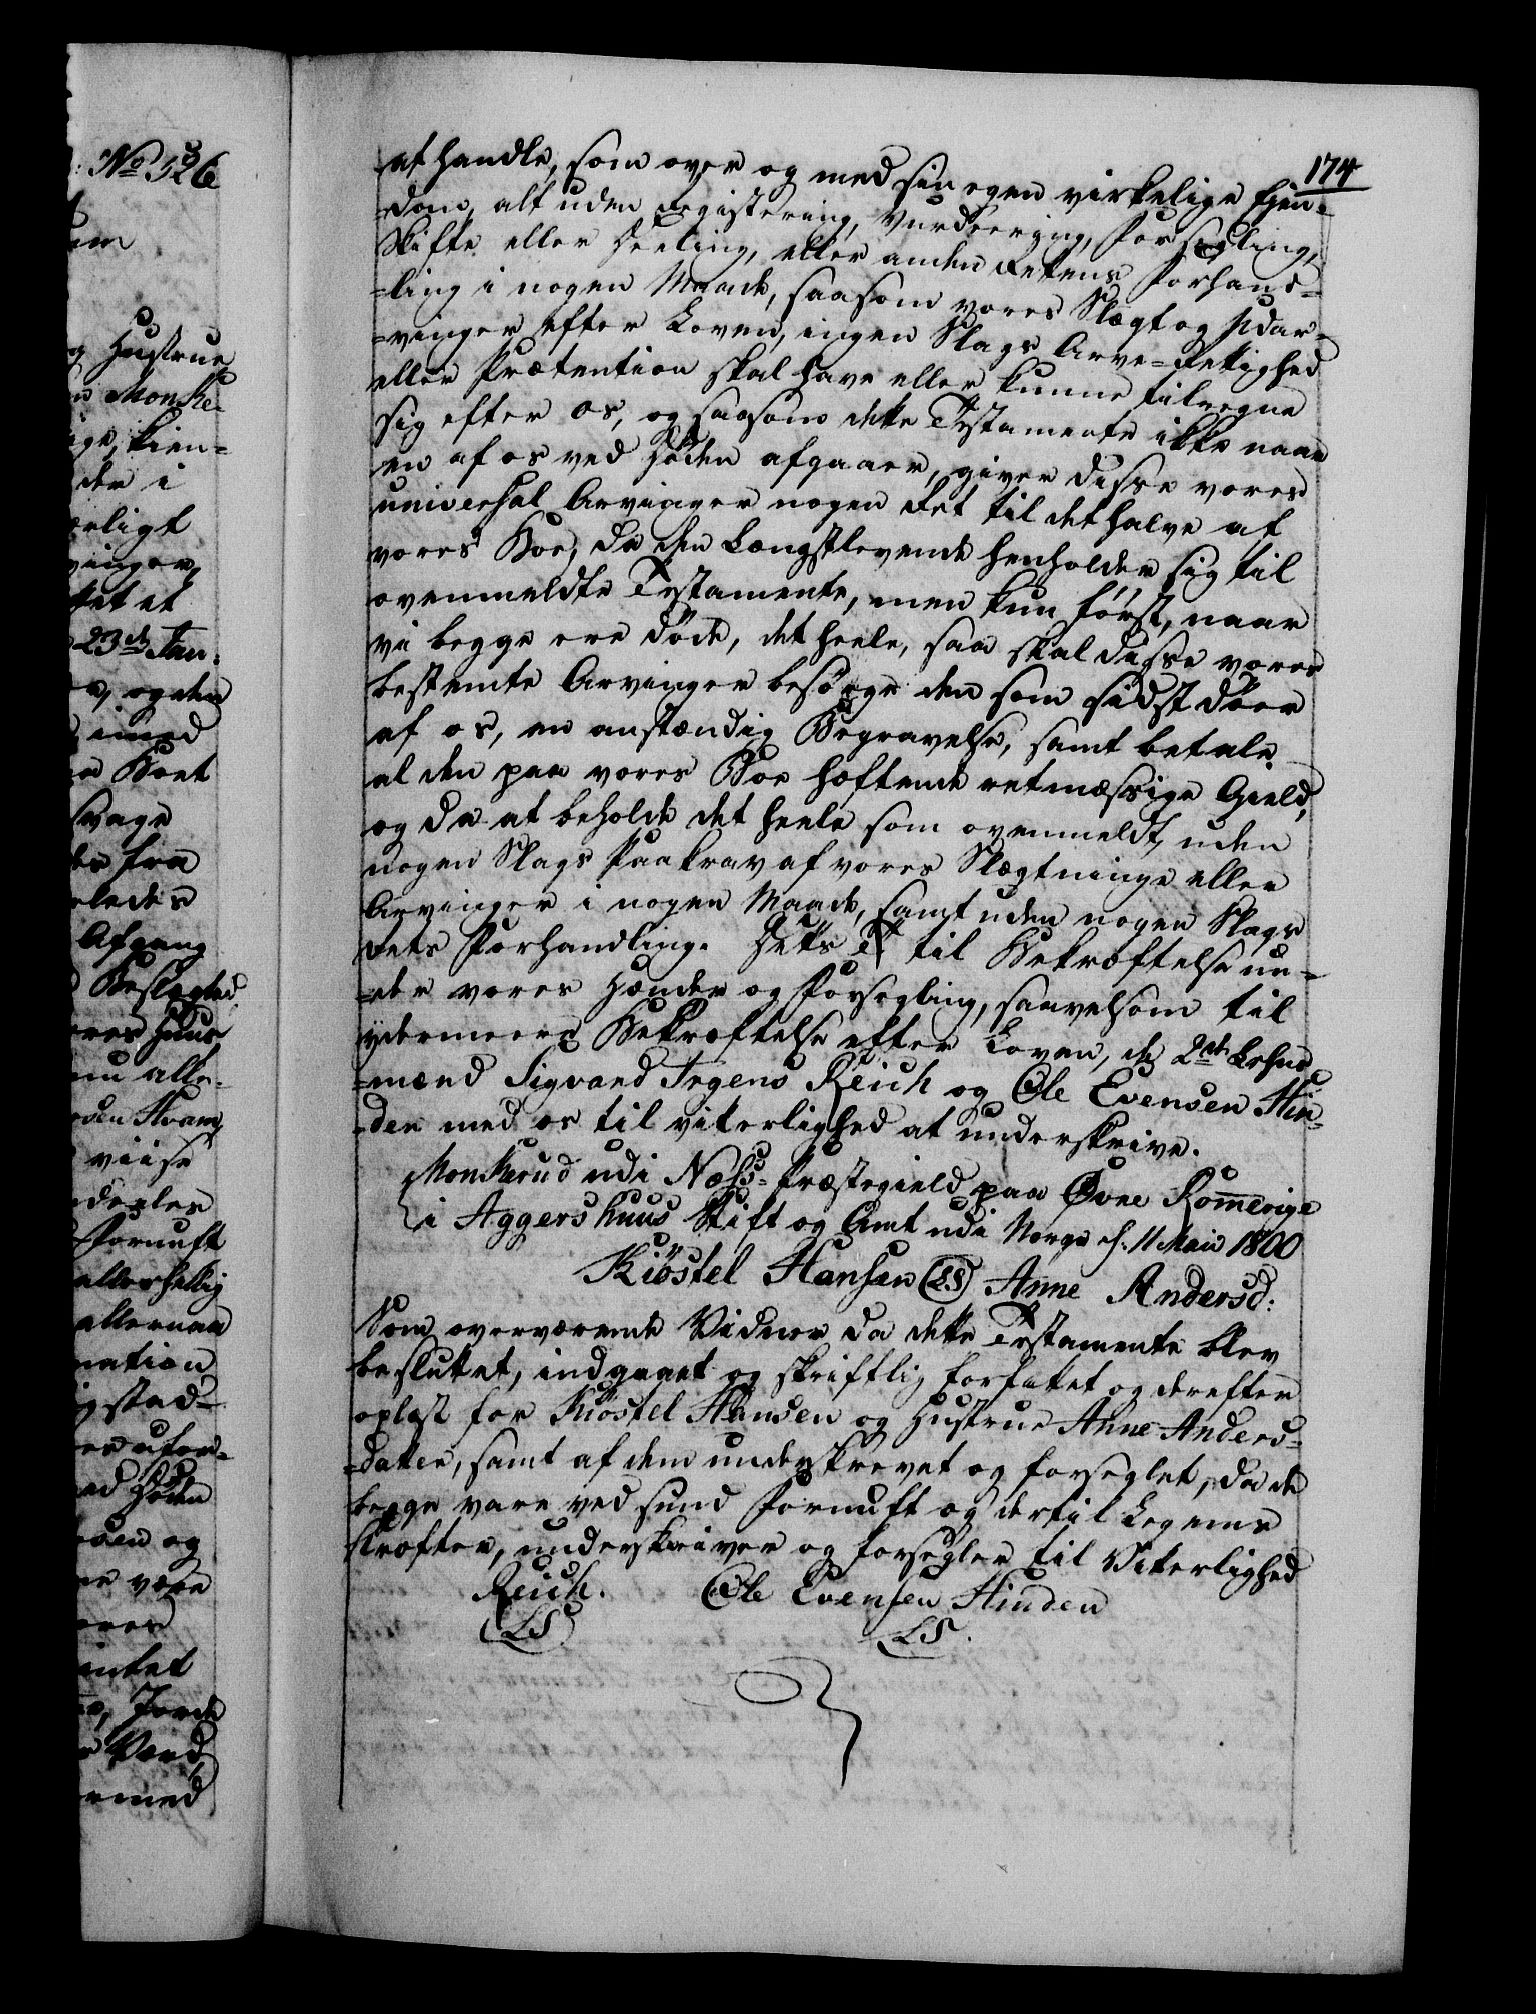 No 526
174
afhandle, som over og med sin egen virkelige Ejen-
-dom, alt uden Registering, Vurdeering, Forsegling,
Skifte eller Deeling, eller anden Rettens Forhand-
-ling i nogen Maade, saasom vores Slægt og Udar-
-vinger efter Loven, ingen Slags Arve-Rettighed
eller Prætention skal have eller kunne tilregne
sig efter os, og saasom dette Testamente ikke naar
en af os ved Döden afgaaer, giver disse vores
universal Arvinger nogen Ret til det halve af
vores Boe, da den Længstlevende henholder sig til
ovenmeldte Testamente, men kun först, naar
vi begge ere döde, det heele, saa skal disse vores
bestemte Arvinger besörge den som sidst döer
af os, en anstændig Begravelse, samt betale
al den paa vores Boe hæftende retmæssige Gield,
og da at beholde det heele som ovenmeldt, uden
nogen Slags Paakrav af vores Slægtninge eller
Arvinger i nogen Maade, samt uden nogen Slags
Rets Forhandling. Dette til Bekræftelse un-
-der vores Hænder og Forsegling, saavelsom til
ydermeere Bekræftelse efter Loven, de 2de Lehns
-mænd Sigvard Irgens Reich og Ole Evensen Hin-
-den med os til viterlighed at underskrive.
Monkerud udi Næss-Præstegield paa Övre Romerige
i Aggershuus Stift og Amt udi Norge d. 11 Maii 1800
Kiöstel Hansen (LS) Anne Andersd:
Som overværende Vidner da dette Testamente blev
besluttet, indgaaet og skriftlig forfattet og derefter
oplæst for Kiöstel Hansen og Hustrue Anne Anders-
-datter, samt af dem underskrevet og forseglet, da de
begge vare ved sund Fornuft og dertil Legems
kræfter, underskriver og forsegler til Viterlighed
Reich. Ole Evensen Hinden
(LS) (LS.